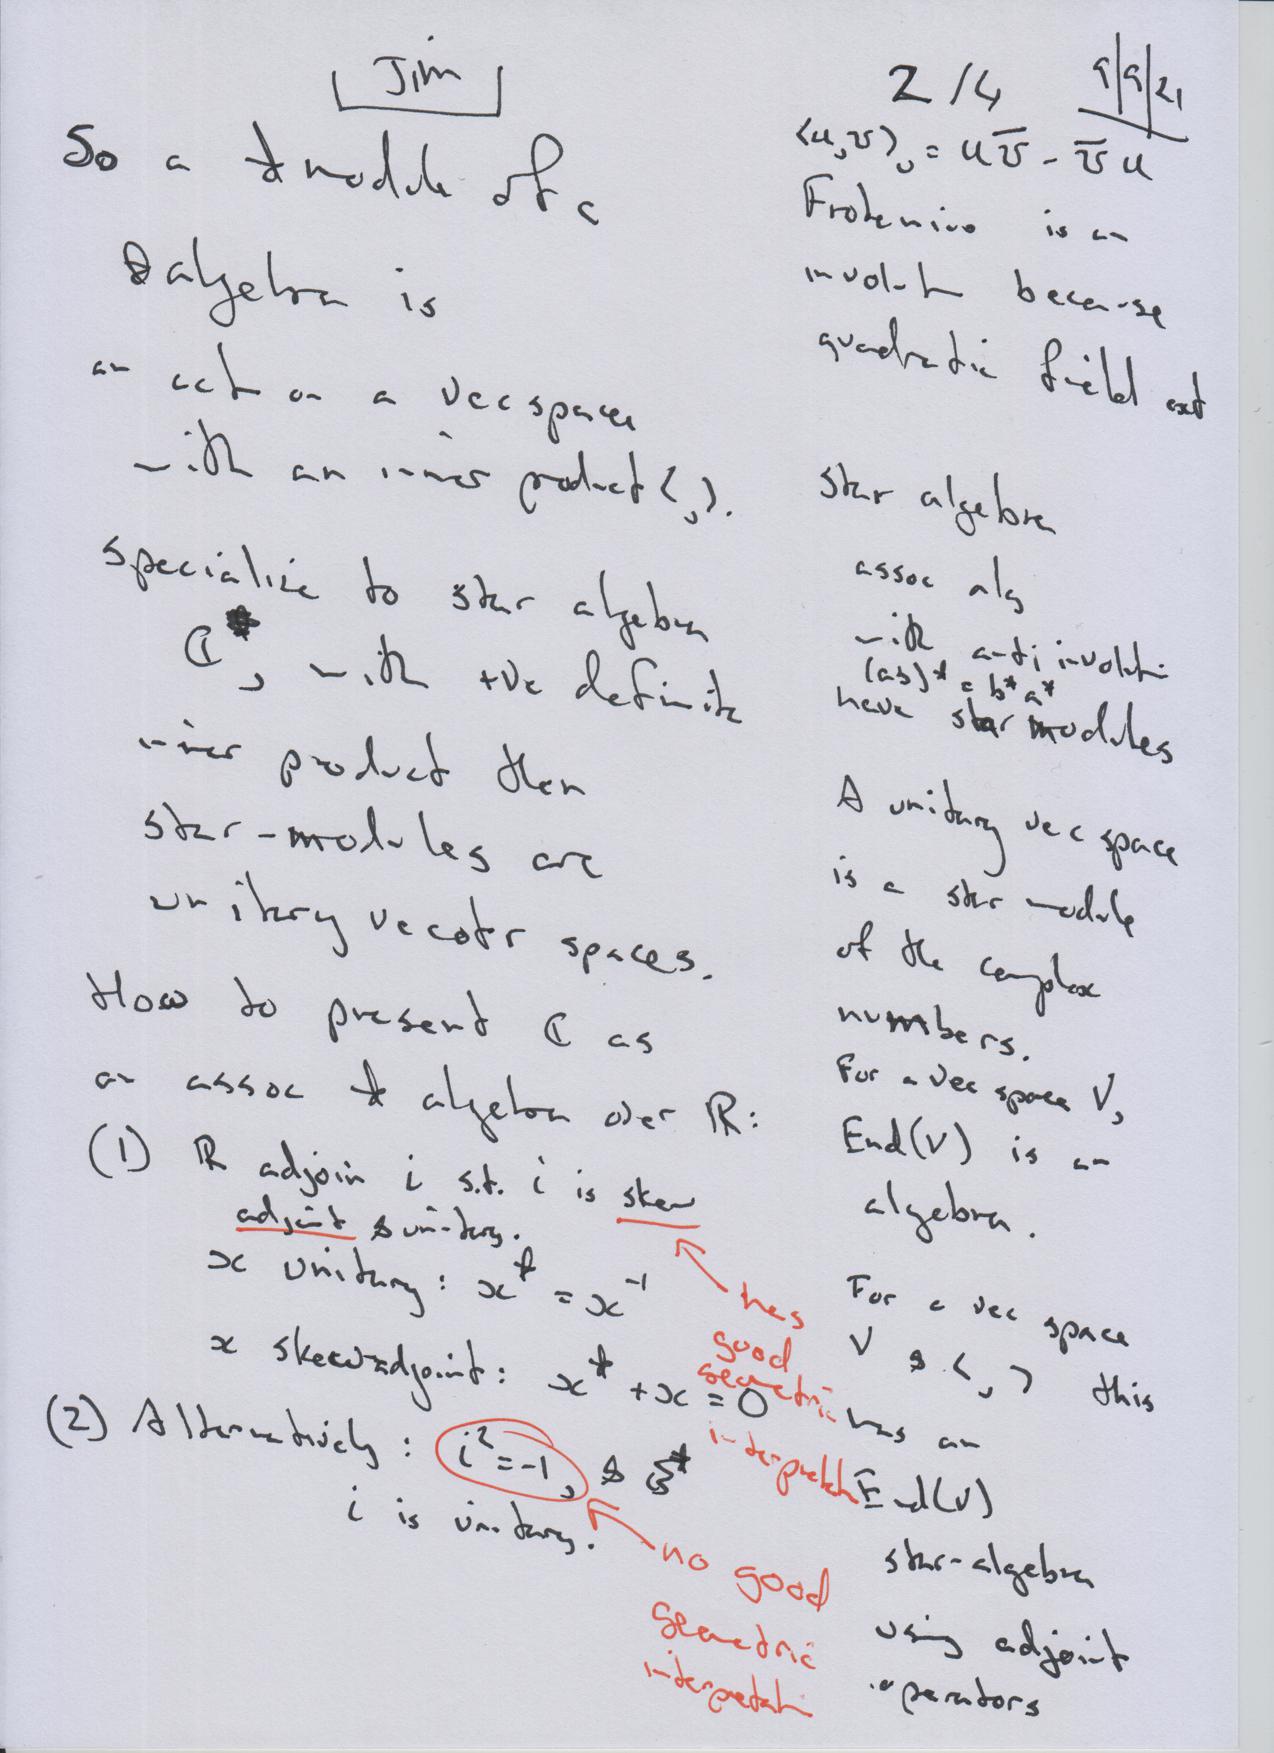 Jim
2/4
9/9/21
So a * module of a
* algebra is
an act on a vec space
with an inner product < , >.
specialize to star algebra
ℂ*, with +ve definite
inner product then
star-modules are
unitary vecotr spaces.
How to present ℂ as
an assoc * algebra over ℝ:
(1) ℝ adjoin i s.t. i is skew
adjoint & unitary.
x unitary: x* = x⁻¹
x skew-adjoint: x* + x = 0
(2) Alternatively: i² = -1, &
i is unitary.
has
good
geometric
interpretatn
no good
geometric
interpretatn
<u,v> = u v̄ - v̄ u
Frobenius is an
involutn because
quadratic field ext
star algebra
assoc alg
with anti involutn
(ab)* = b* a*
have star modules
A unitary vec space
is a star module
of the complex
numbers.
For a vec space V,
End(V) is an
algebra.
For a vec space
V & < , > this
has an
End(V)
star-algebra
using adjoint
operators